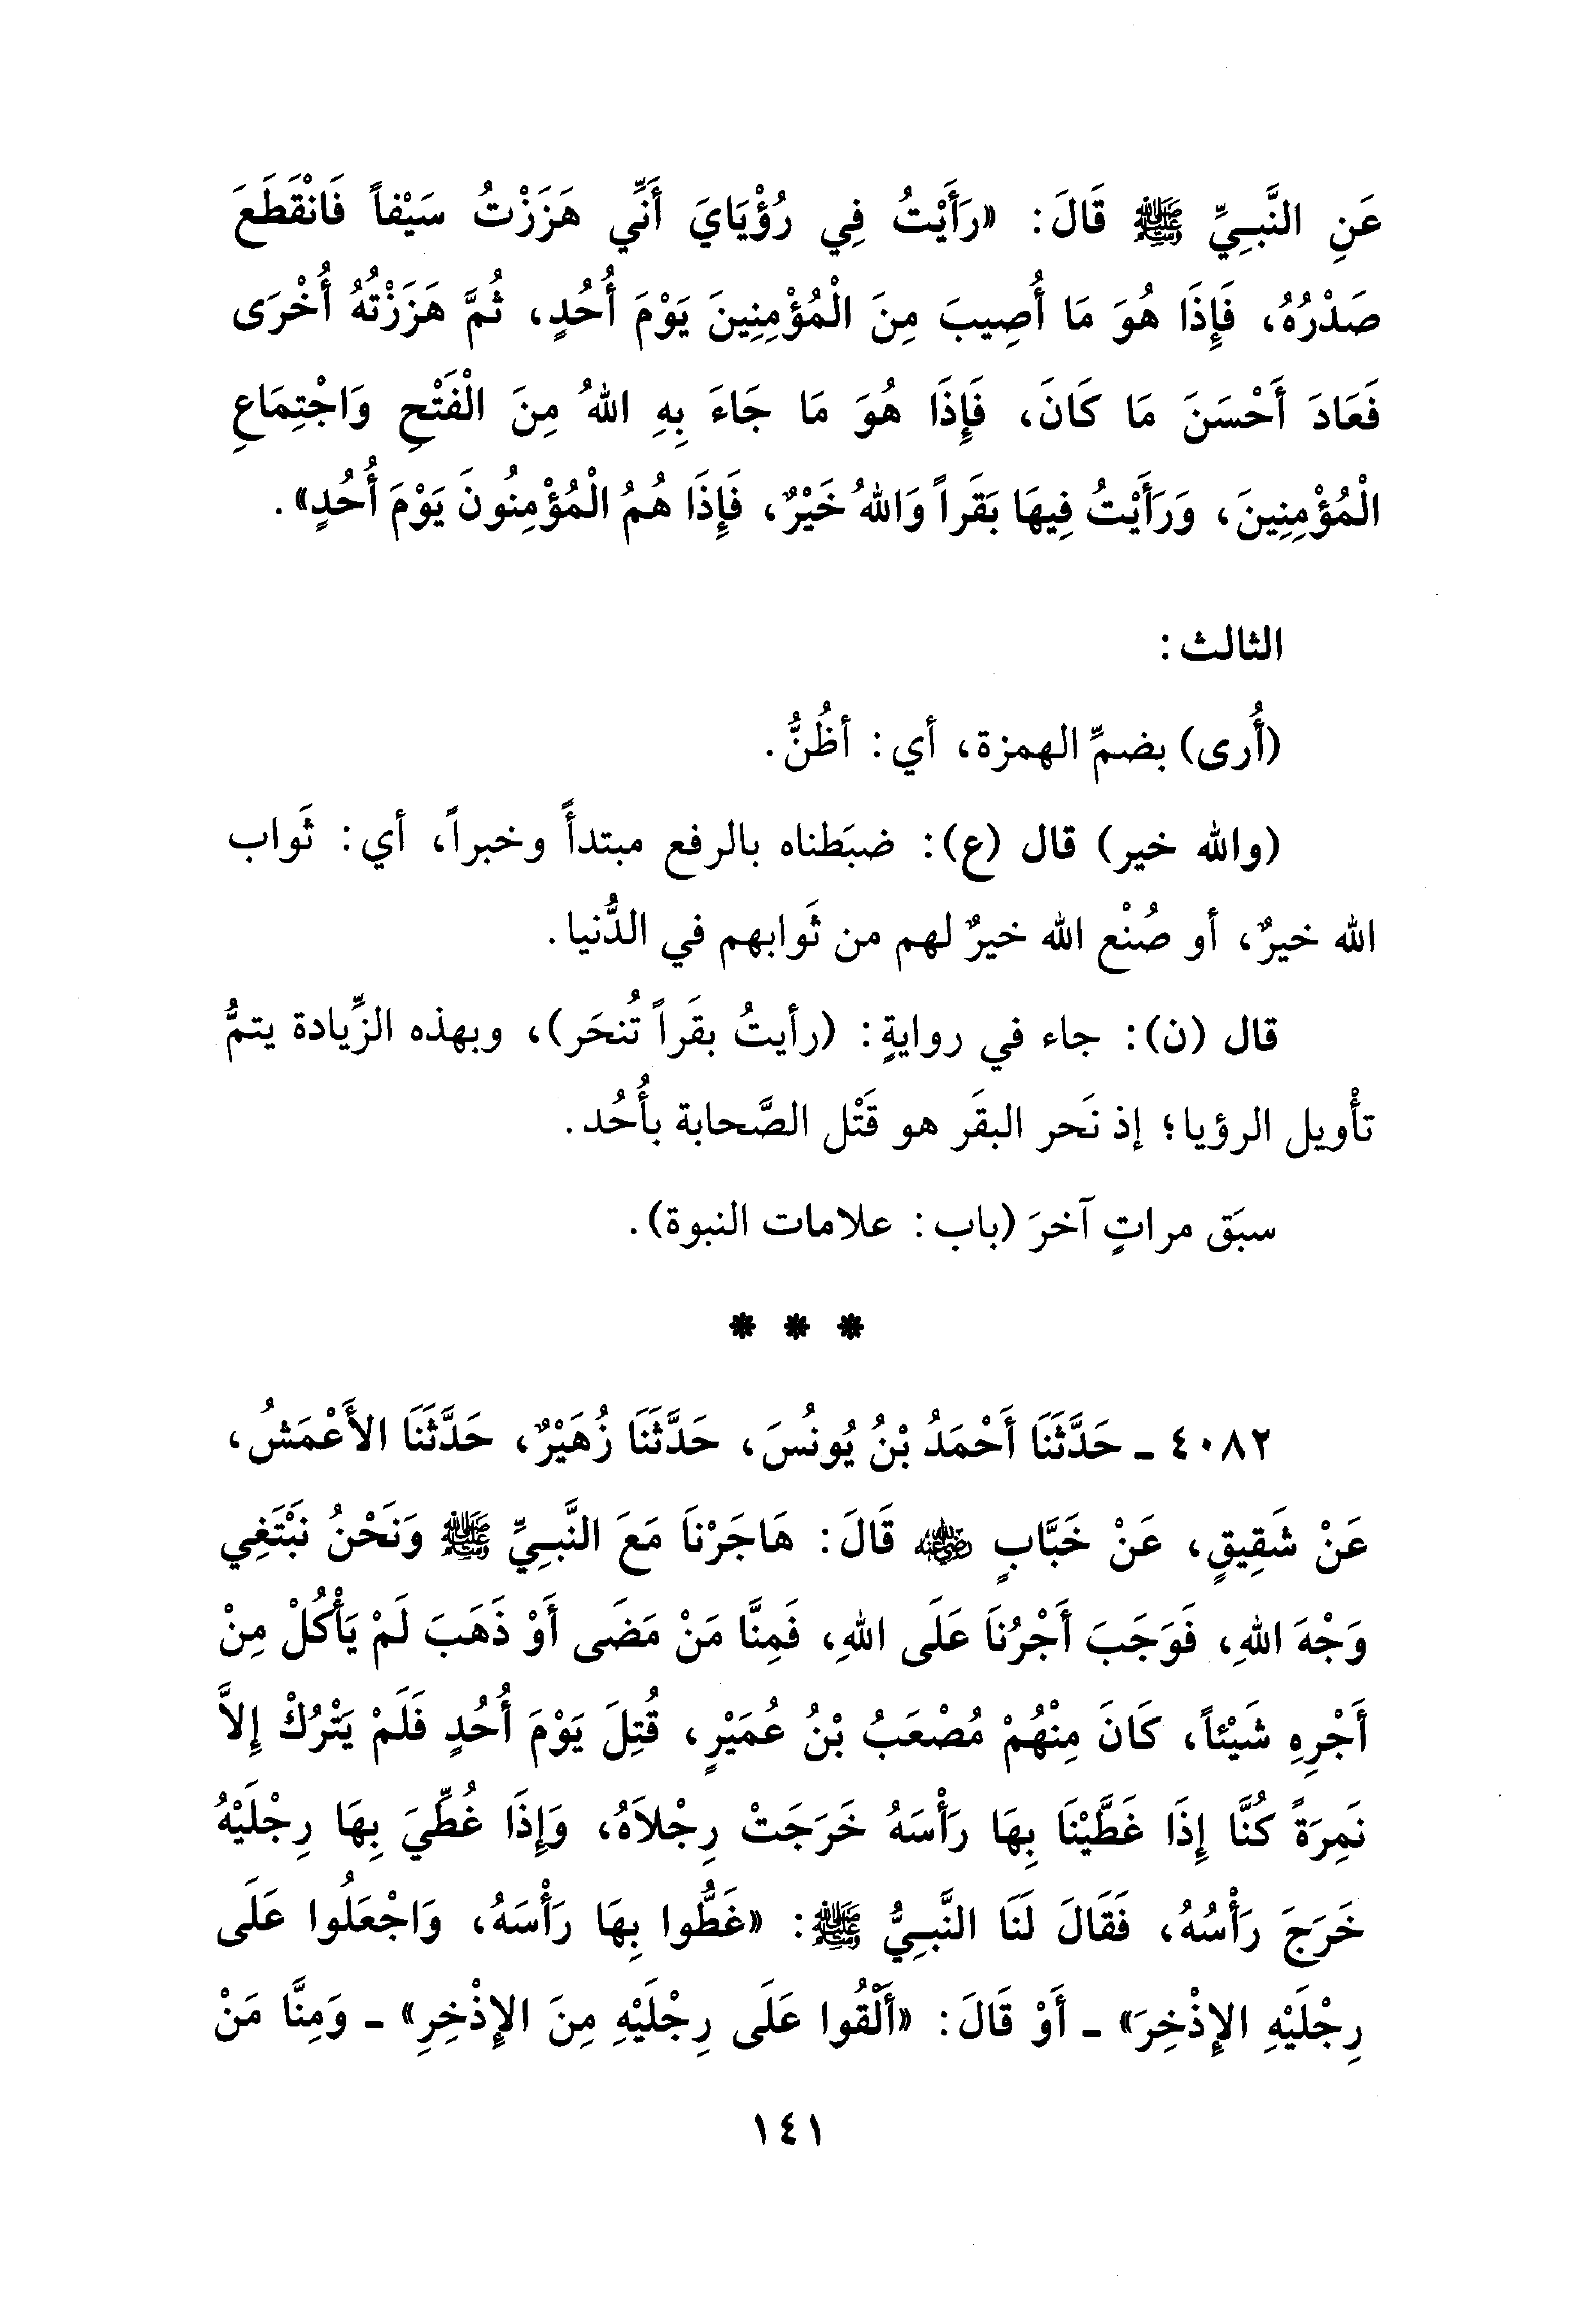 عَنِ النَّبِيِّ ﷺ قَالَ: «رَأَيْتُ فِي رُؤْيَايَ أَنِّي هَزَزْتُ سَيْفاً فَانْقَطَعَ
صَدْرُهُ، فَإِذَا هُوَ مَا أُصِيبَ مِنَ الْمُؤْمِنِينَ يَوْمَ أُحُدٍ، ثُمَّ هَزَزْتُهُ أُخْرَى
فَعَادَ أَحْسَنَ مَا كَانَ، فَإِذَا هُوَ مَا جَاءَ بِهِ اللهُ مِنَ الْفَتْحِ وَاجْتِمَاعِ
الْمُؤْمِنِينَ، وَرَأَيْتُ فِيهَا بَقَراً وَاللهُ خَيْرٌ، فَإِذَا هُمُ الْمُؤْمِنُونَ يَوْمَ أُحُدٍ».
الثالث:
(أُرى) بضمِّ الهمزة، أي: أظُنُّ.
(والله خير) قال (ع): ضبَطناه بالرفع مبتدأً وخبراً، أي: ثَواب
الله خيرٌ، أو صُنْع الله خيرٌ لهم من ثَوابهم في الدُّنيا.
قال (ن): جاء في روايةٍ: (رأيتُ بقَراً تُنحَر)، وبهذه الزِّيادة يتمُّ
تأْويل الرؤيا؛ إذ نَحر البقَر هو قَتْل الصَّحابة بأُحُد.
سبَق مراتٍ آخرَ (باب: علامات النبوة).
* * *
٤٠٨٢ ـ حَدَّثَنَا أَحْمَدُ بْنُ يُونُسَ، حَدَّثَنَا زُهَيْرٌ، حَدَّثَنَا الأَعْمَشُ،
عَنْ شَقِيقٍ، عَنْ خَبَّابٍ رضي الله عنه قَالَ: هَاجَرْنَا مَعَ النَّبِيِّ ﷺ وَنَحْنُ نَبْتَغِي
وَجْهَ اللهِ، فَوَجَبَ أَجْرُنَا عَلَى اللهِ، فَمِنَّا مَنْ مَضَى أَوْ ذَهَبَ لَمْ يَأْكُلْ مِنْ
أَجْرِهِ شَيْئاً، كَانَ مِنْهُمْ مُصْعَبُ بْنُ عُمَيْرٍ، قُتِلَ يَوْمَ أُحُدٍ فَلَمْ يَتْرُكْ إِلاَّ
نَمِرَةً كُنَّا إِذَا غَطَّيْنَا بِهَا رَأْسَهُ خَرَجَتْ رِجْلاَهُ، وَإِذَا غُطِّيَ بِهَا رِجْلَيْهُ
خَرَجَ رَأْسُهُ، فَقَالَ لَنَا النَّبِيُّ ﷺ: «غَطُّوا بِهَا رَأْسَهُ، وَاجْعَلُوا عَلَى
رِجْلَيْهِ الإِذْخِرَ» ـ أَوْ قَالَ: «أَلْقُوا عَلَى رِجْلَيْهِ مِنَ الإِذْخِرِ» ـ وَمِنَّا مَنْ
١٤١